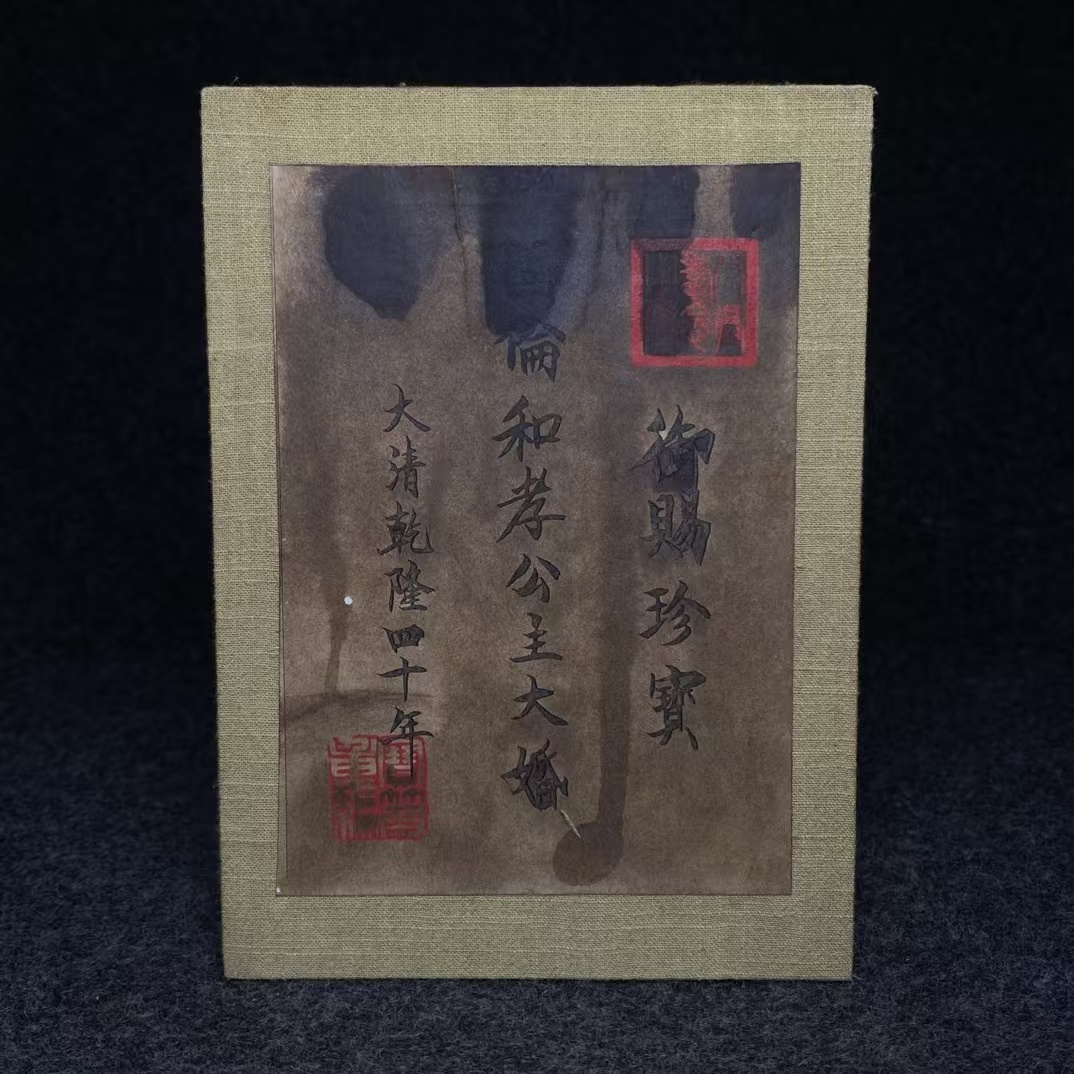 御賜珍寶
倫和孝公主大婚
大清乾隆四十年